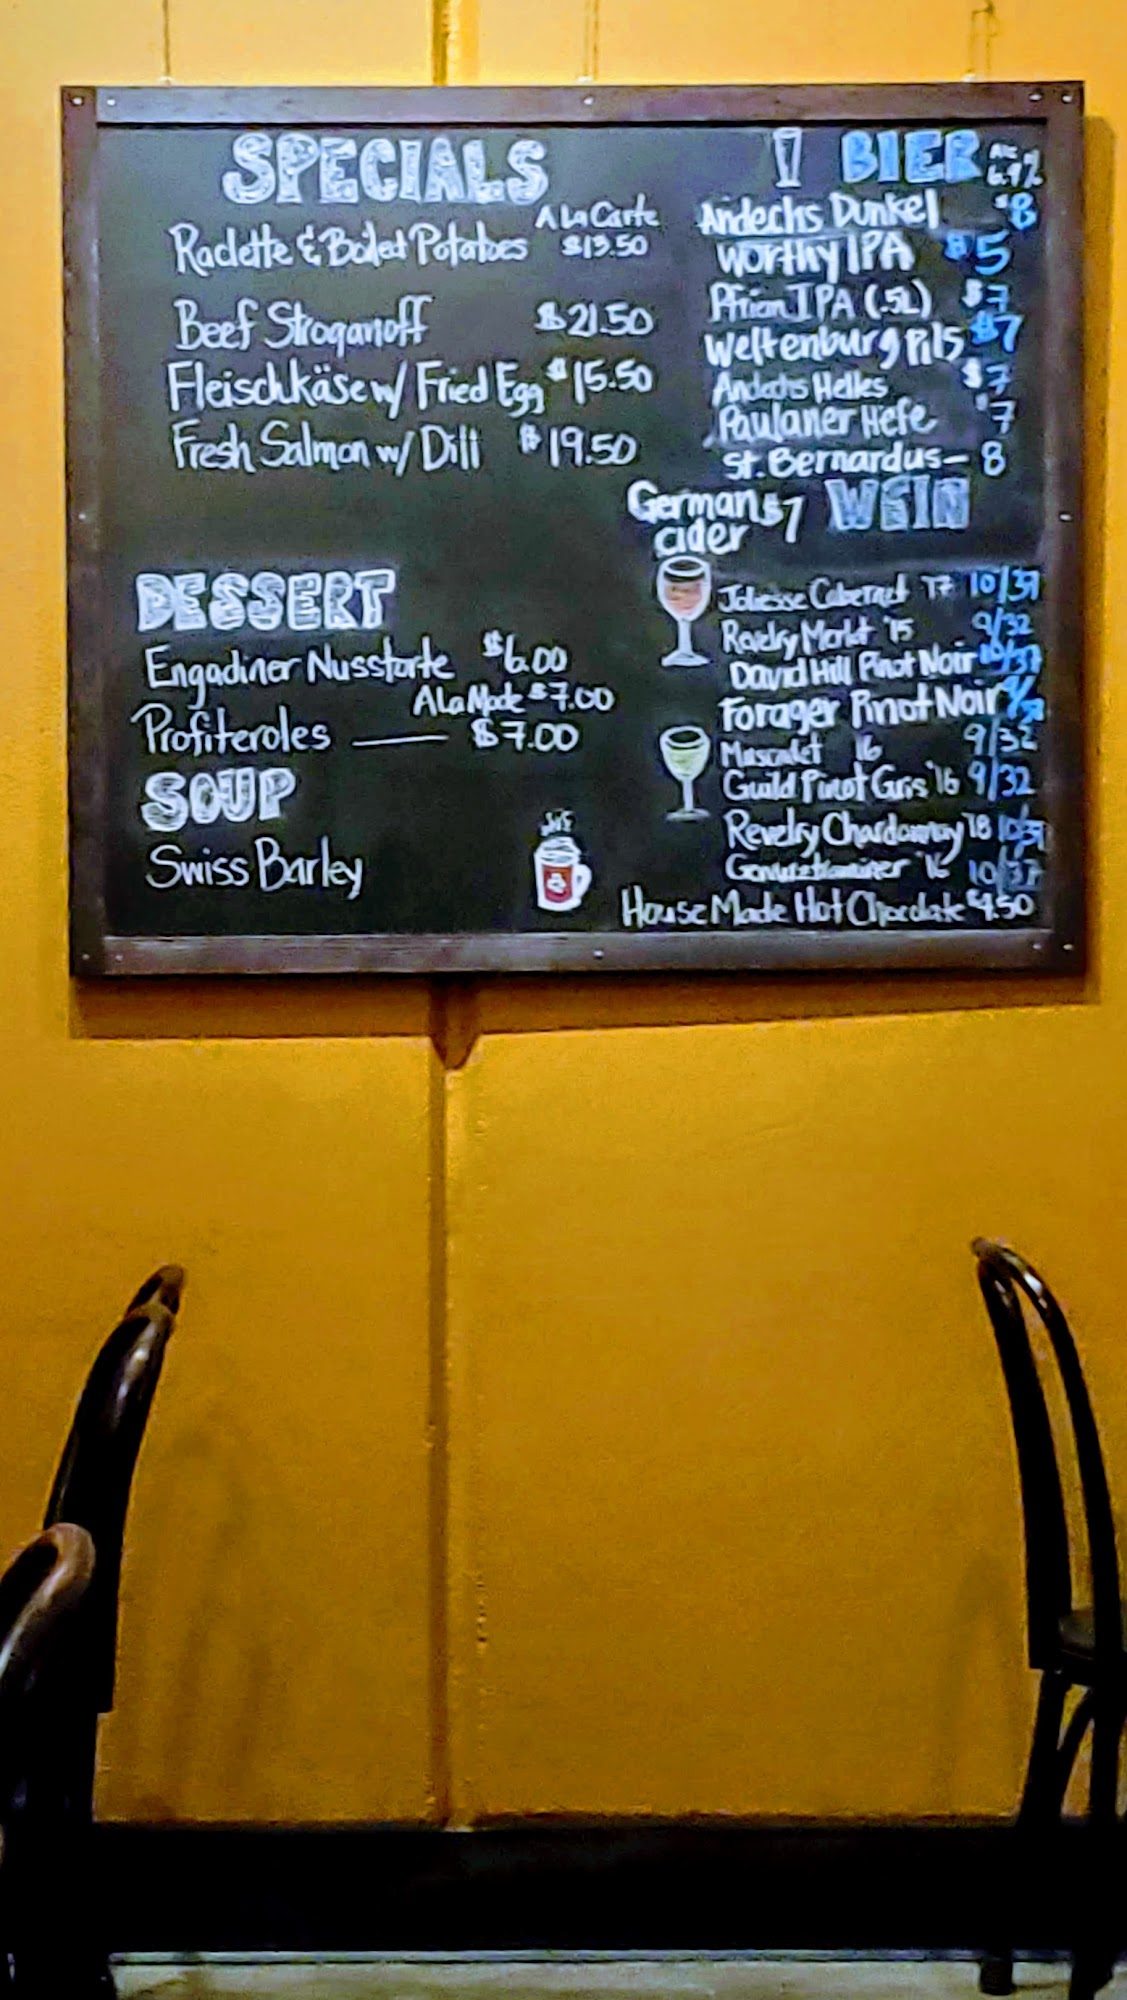 SPECIALS
A La Carte
Raclette & Boiled Potatoes $13.50
Beef Stroganoff $21.50
Fleischkäse w/ Fried Egg $15.50
Fresh Salmon w/ Dill $19.50
DESSERT
Engadiner Nusstorte $6.00
A La Mode $7.00
Profiteroles — $7.00
SOUP
Swiss Barley
BIER
6.9%
Andechs Dunkel $8
Worthy IPA $5
Pfriem IPA (.5L) $7
Weltenburg Pils $7
Andechs Helles $7
Paulaner Hefe $7
St. Bernardus - 8
German cider $7
WEIN
Joliesse Cabernet 17 10/37
Revelry Merlot '15 9/32
David Hill Pinot Noir 10/37
Forager Pinot Noir
Muscadet 16 9/32
Guild Pinot Gris '16 9/32
Revelry Chardonnay '18 10/37
Gewurztraminer '16 10/37
House Made Hot Chocolate $4.50